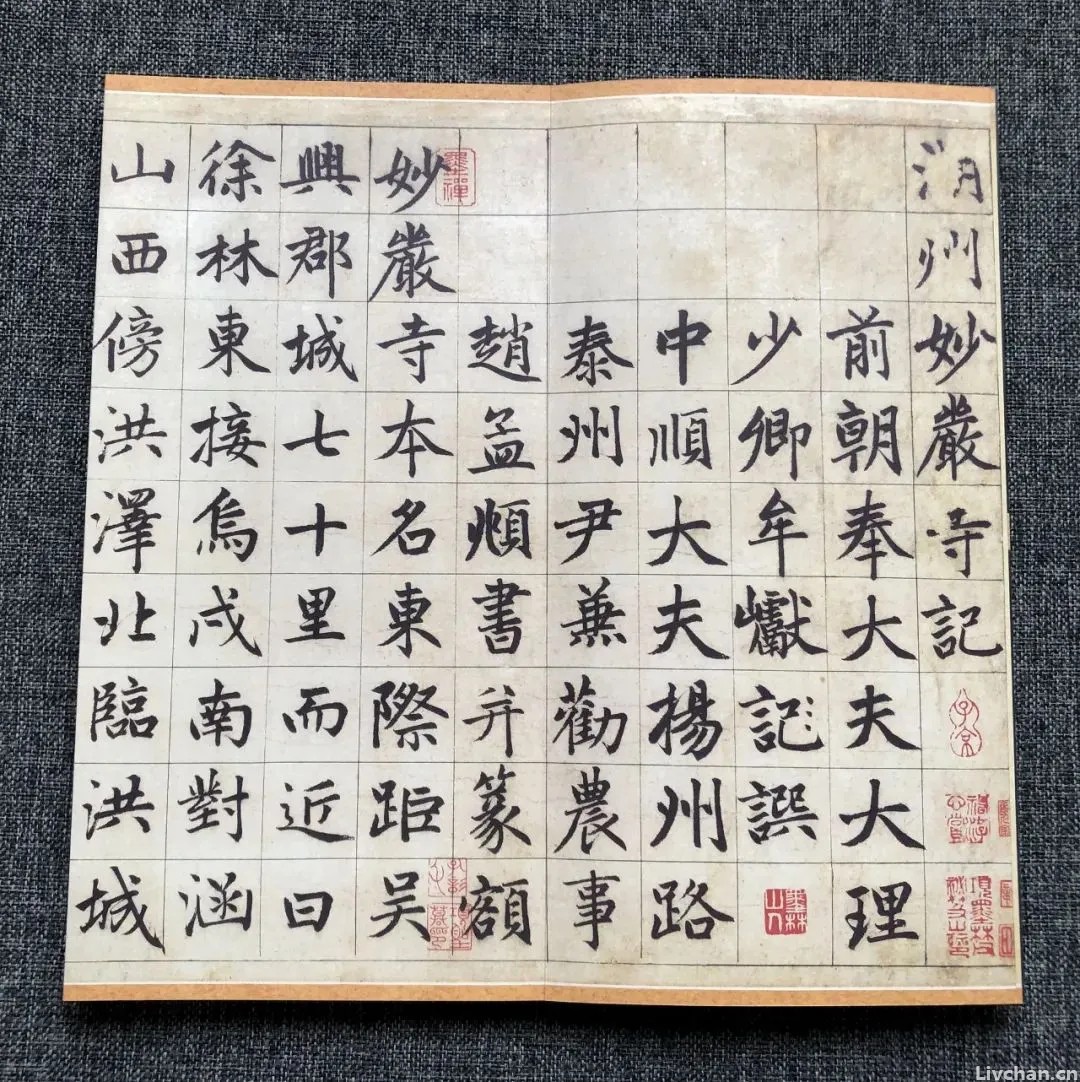 湖州妙嚴寺記
前朝奉大夫大理
少卿牟巘記譔
中順大夫揚州路
泰州尹兼勸農事
趙孟頫書并篆額
妙嚴寺本名東際距吳
興郡城七十里而近曰
徐林東接烏戍南對涵
山西傍洪澤北臨洪城
子京
墨林山人
Livchan.cn